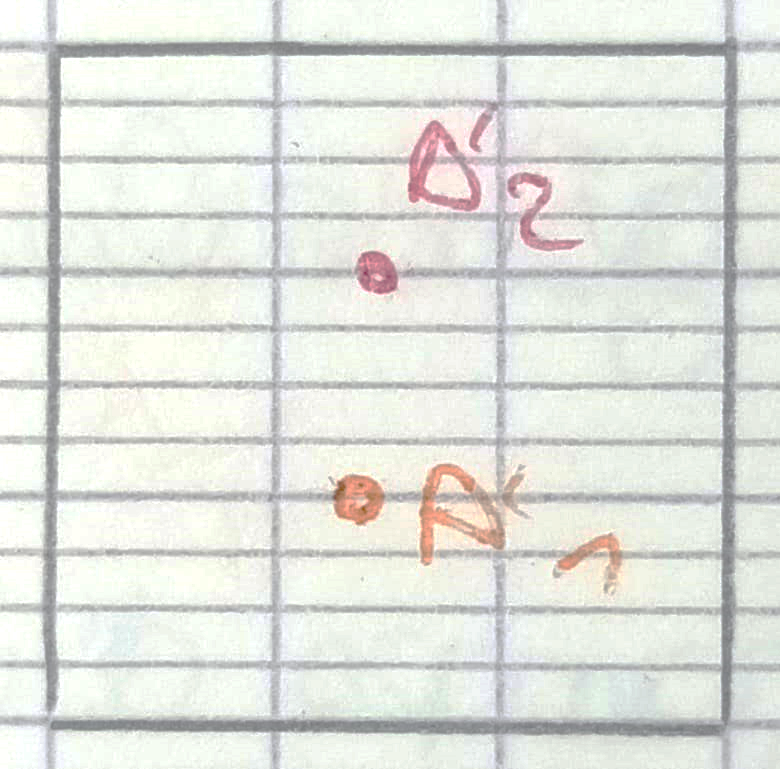 A'2
A'1